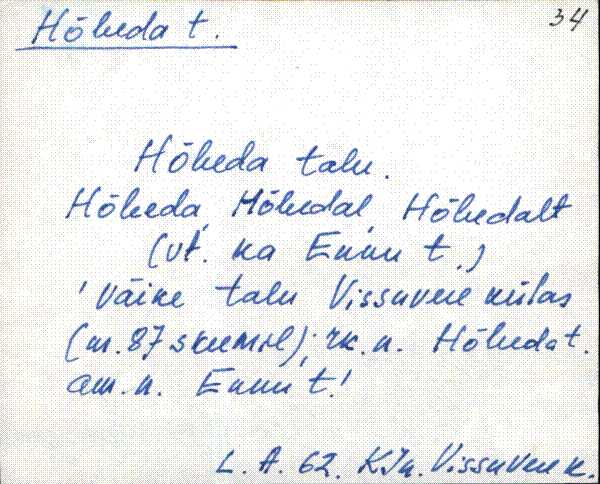 Hõbeda t.
34
Hõbeda talu.
Hõbeda, Hõbedal, Hõbedalt
(vt. ka Ennu t.)
'väike talu Vissuvere külas
(m. 87 skeemil); rk. n. Hõbeda t.
am. n. Ennu t.'
L. A. 62. KJn. Vissuvere k.